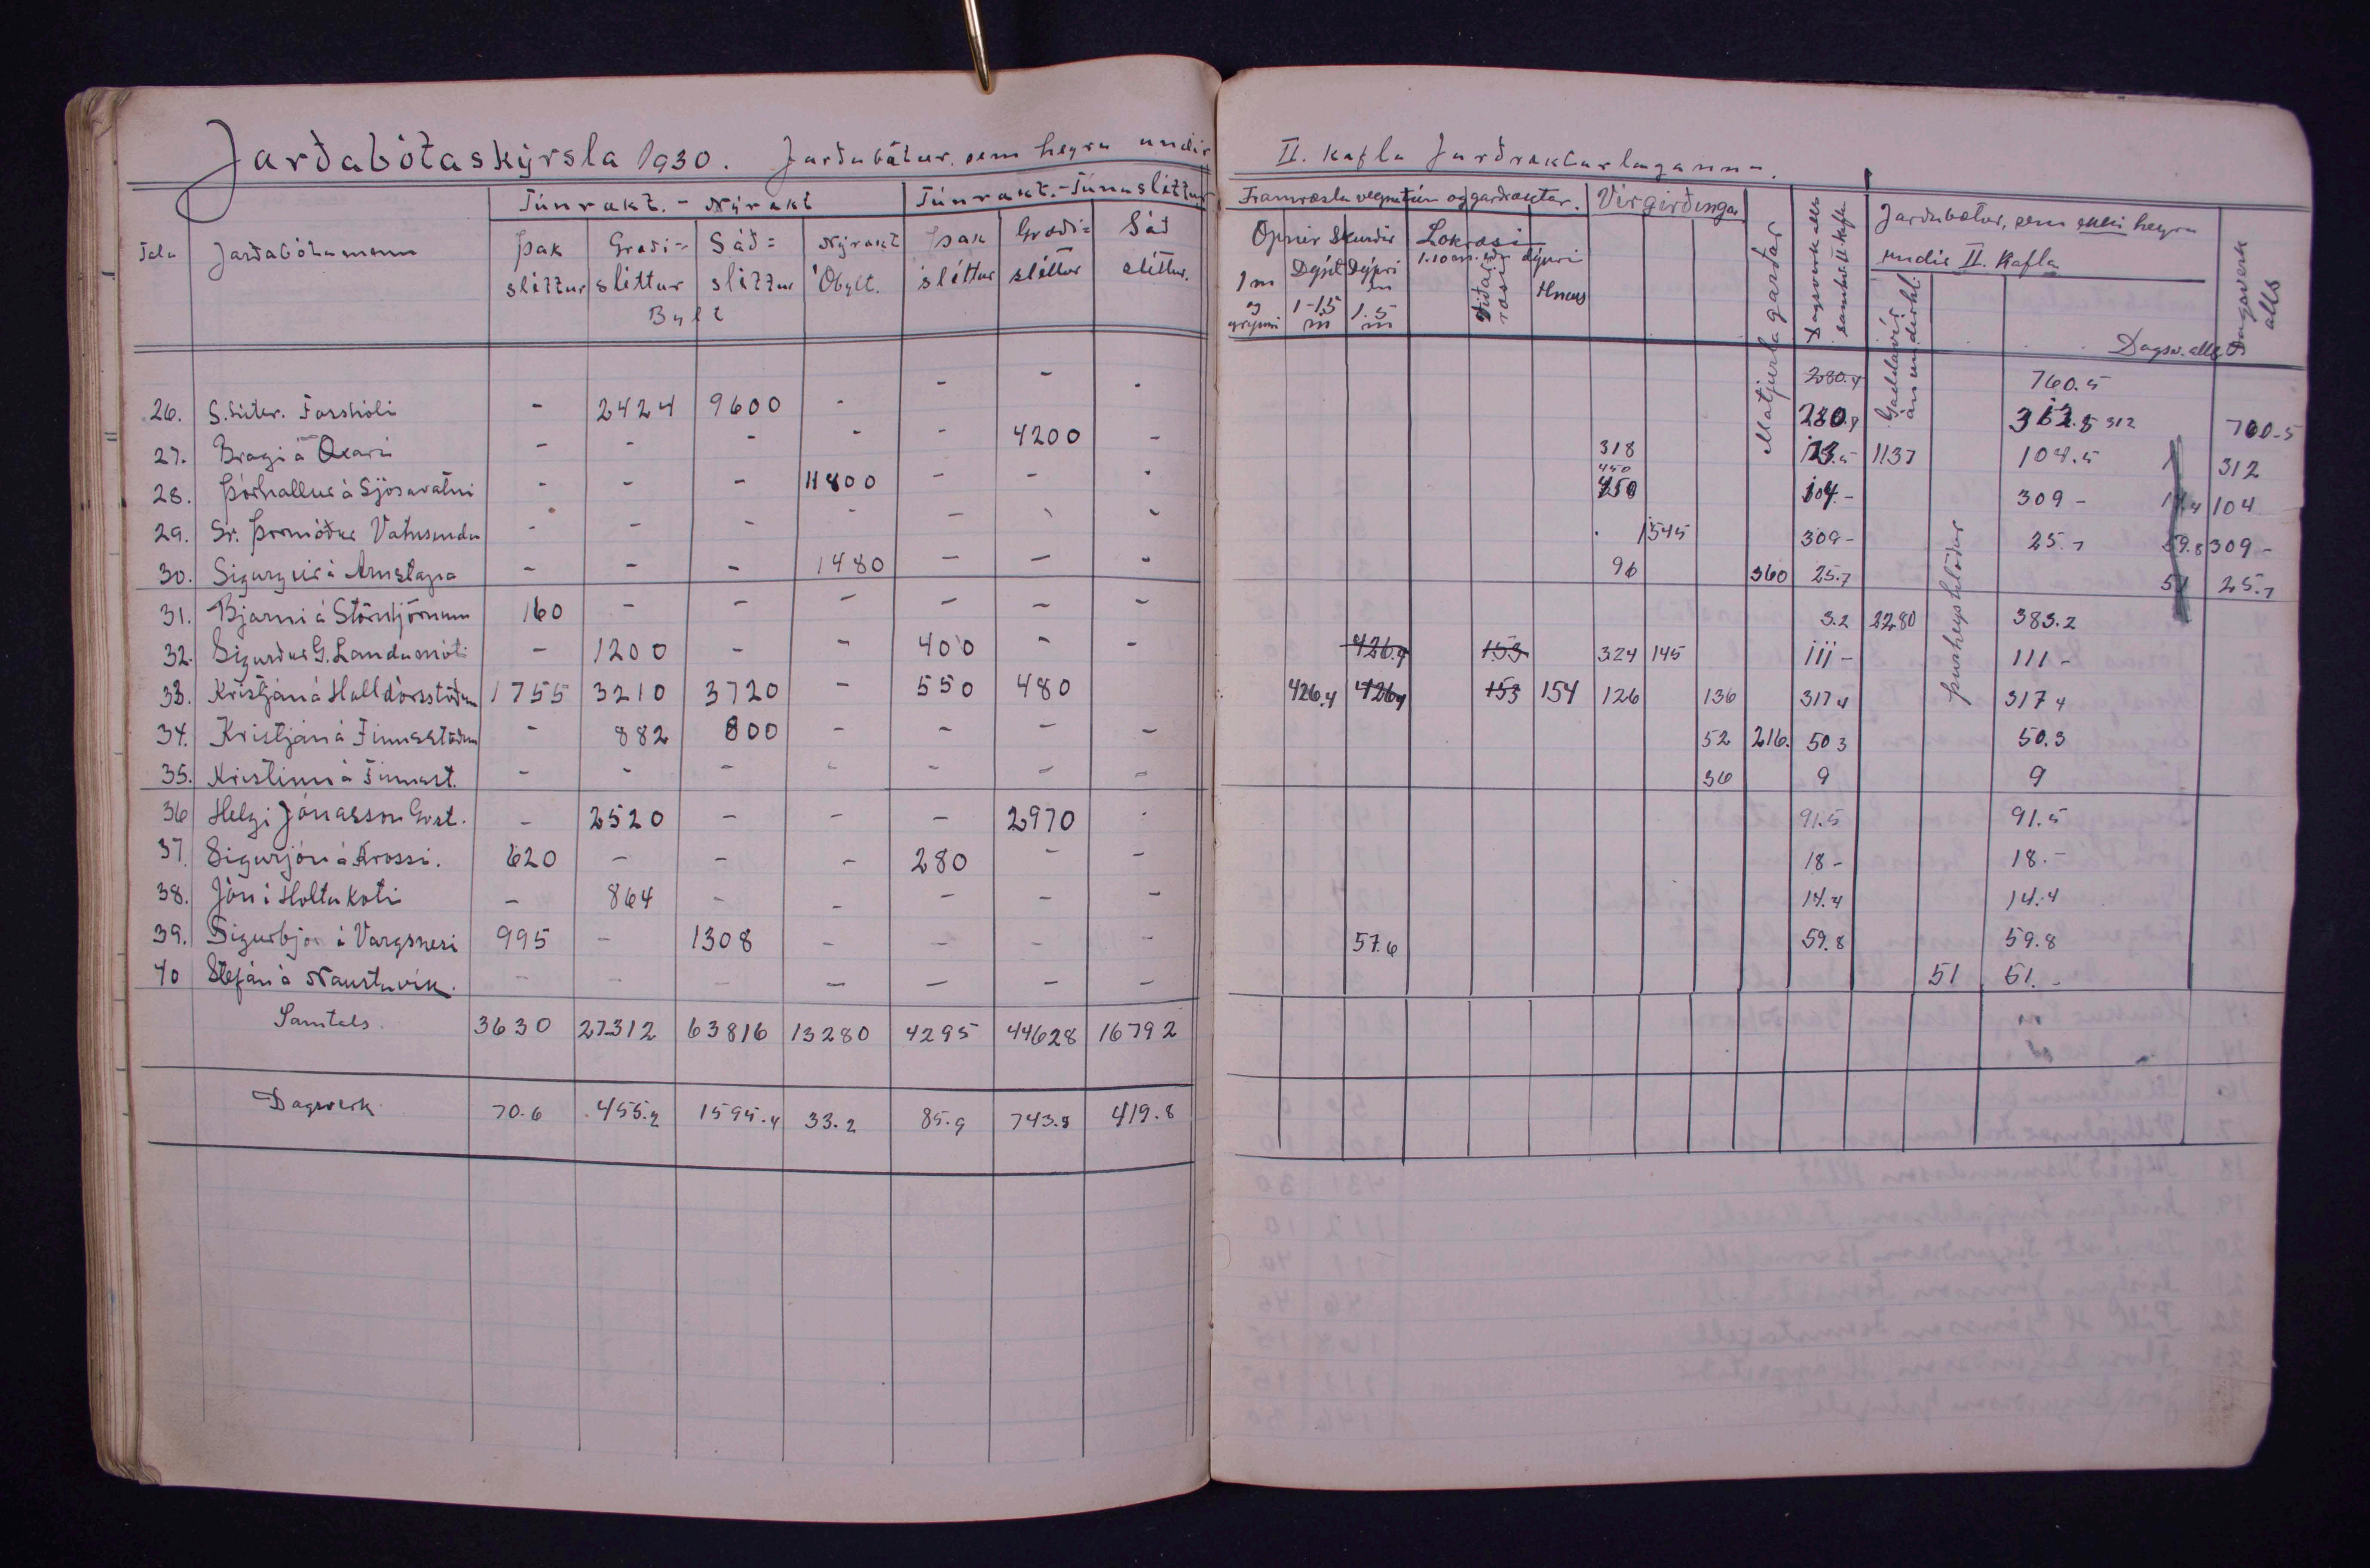 Jarðabótaskýrsla 1930. Jarðabätur, sem heyra undir
Túnrakt. - Nýrakt Túnrakt. - Túnasléttur
Tala Jarðabótamenn Þak Græði= Sáð= Nýrakt Þak Græði= Sáð
sléttur sléttur sléttur Óbylt. sléttur sléttur sléttur.
Bylt
26. S. Sigtr. Fosshóli - 2424 9600 - - - -
27. Bragi á Öxará - - - - - 4200 -
28. Þórhallur á Ljósavatni - - - 11800 - - -
29. Sr. Þormóður Vatnsenda - - - - - - -
30. Sigurgeir á Arnstapa - - - 1480 - - -
31. Bjarni á Stórutjörnum 160 - - - - - -
32. Sigurður G. Landamóti - 1200 - - 400 - -
33. Kristján á Halldórsstöðum 1755 3210 3720 - 550 480
34. Kristján á Finnsstöðum - 882 800 - - - -
35. Kristinn á Finnsst. - - - - - - -
36 Helgi Jónasson Gvst. - 2520 - - - 2970 -
37. Sigurjón á Krossi. 620 - - - 280 - -
38. Jón í Holtakoti - 864 - - - - -
39. Sigurbjör á Vargsnesi 995 - 1308 - - - -
40 Stefán á Naustavík. - - - - - - -
Samtals. 3630 27312 63816 13280 4295 44628 16792
Dagsverk 70.6 455.2 1595.4 33.2 85.9 743.8 419.8
II. Kafla Jarðræktarlaganna.
Framræsla vegna tún og garðræktar. Virgirðingar Matjurta garðar Dagsverk alls samkv. II. Kafla Jarðabætur, sem ekki heyra
undir II. Kafla Dagsverk alls
Opnir Skurðir Lokræsi
1 m og grynnri Dýpt 1-1.5 m Dýpri en 1.5 m 1.10 m. dýpri Viðar ræsi Hnaus
Gaddavír án undirhl. þurheyshlöður Dagsv. alls
280.4 760.5
280.4 312.5 312 760.5
318 1137 104.5 312
450
450 104.- 309 - 14.4 104
1545 309- 25.7 59.8 309 -
96 360 25.7 51 25.7
3.2 2280 383.2
426.4 153 324 145 111 - 111 -
426.4 426.4 153 154 126 136 317 4 317 4
52 216. 50 3 50.3
36 9 9
91.5 91.5
18 - 18.-
14.4 14.4
57.6 59.8 59.8
51 51.-